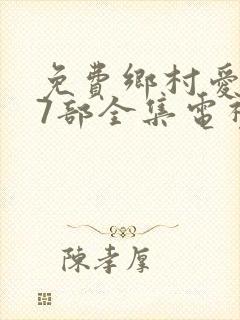 免費鄉村愛
7部全集電視
陳孝厚